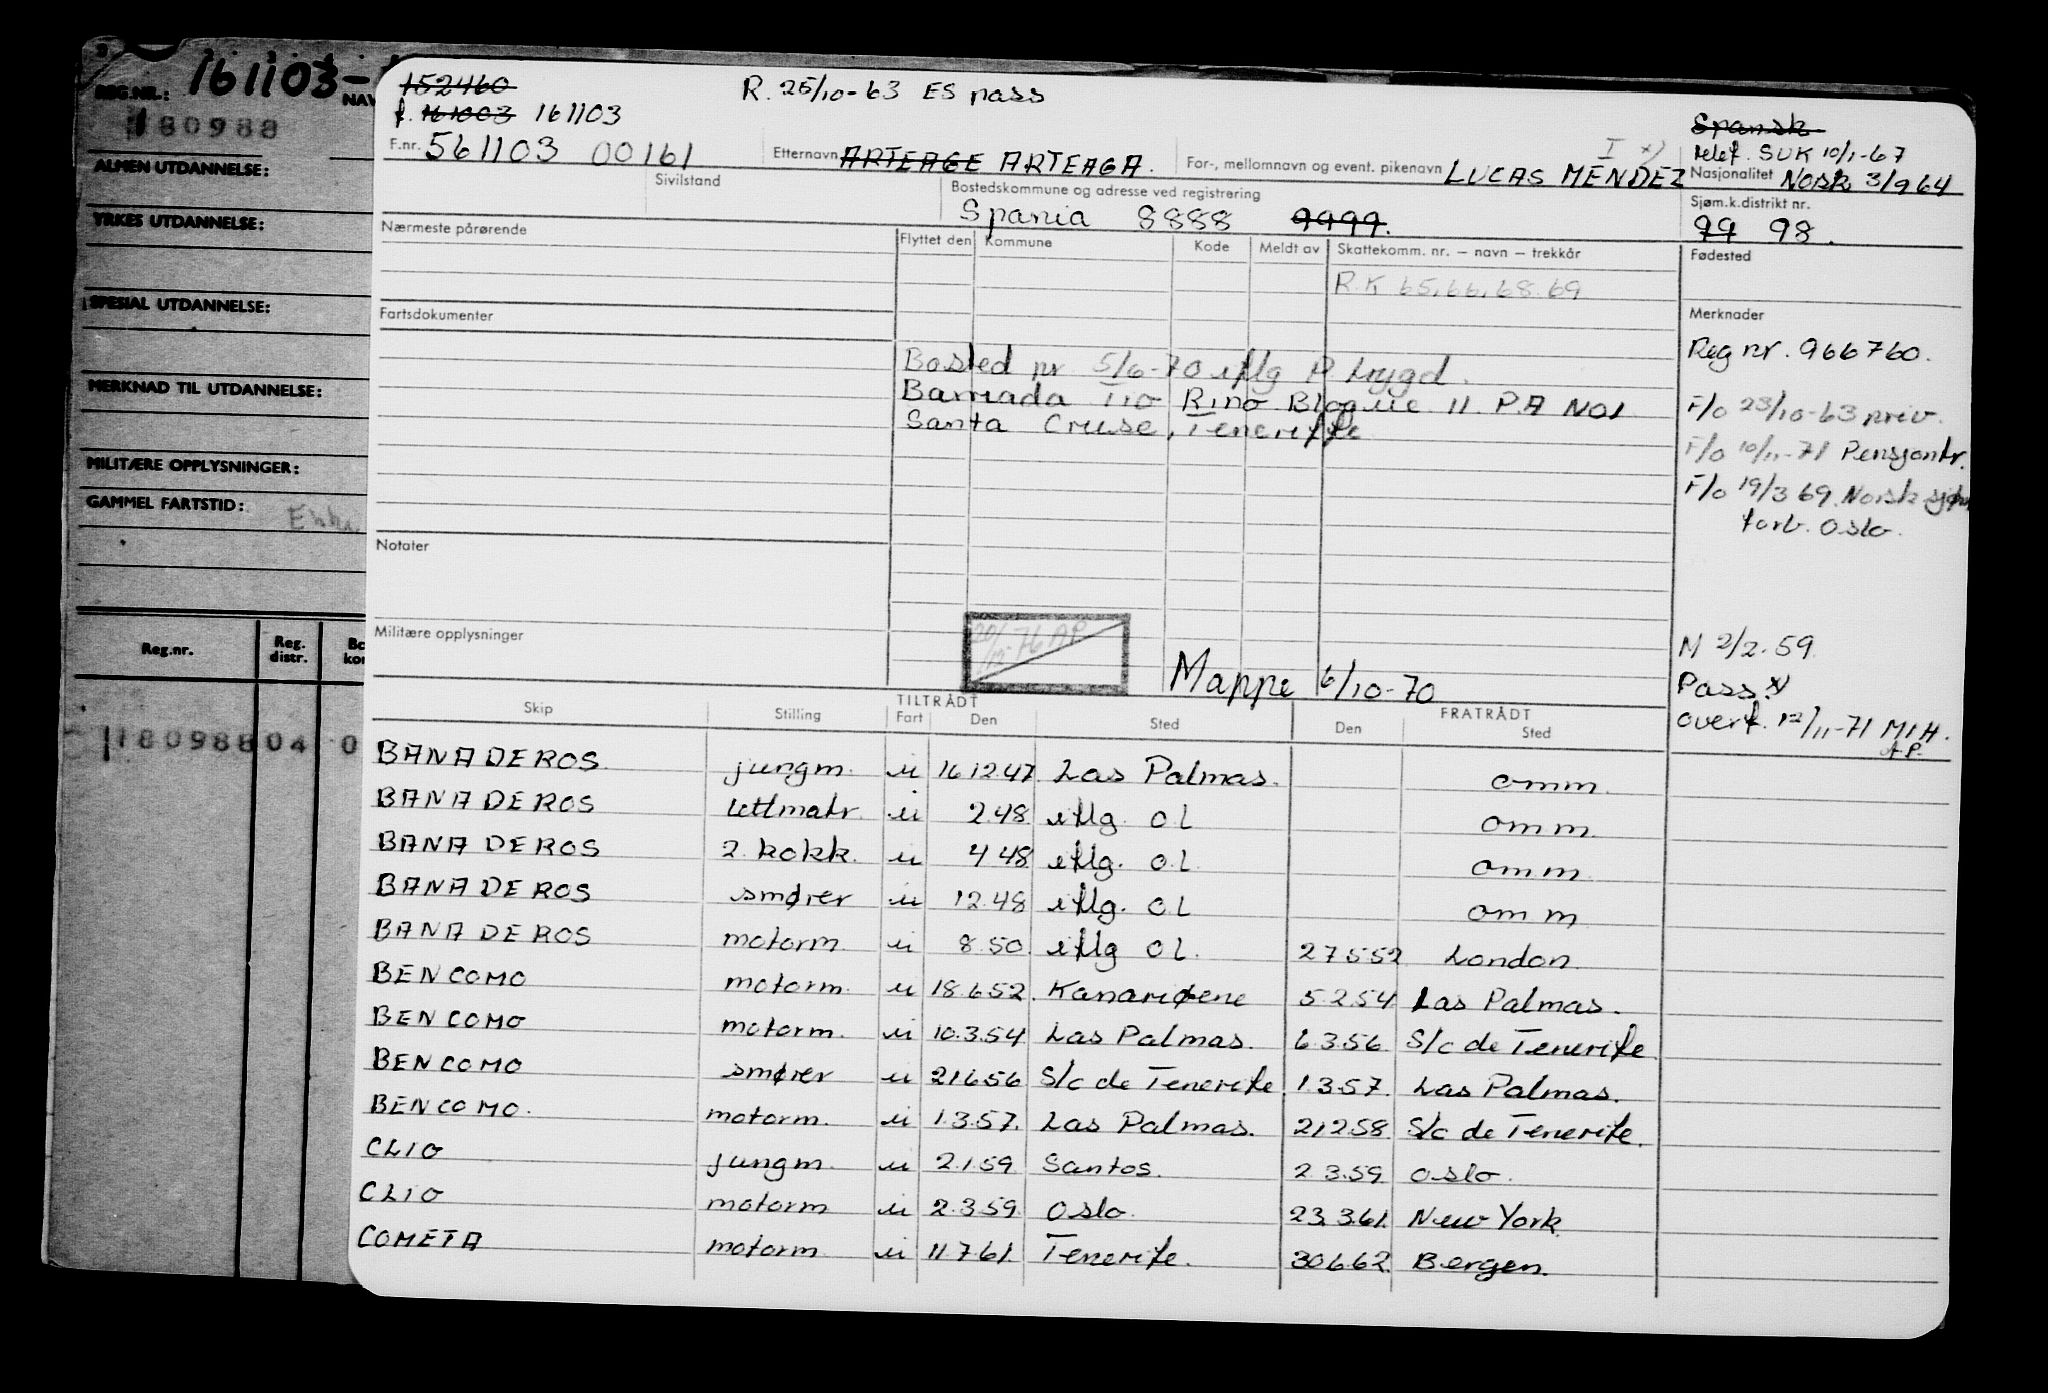 REG.NR.: 161103-
NAV
180988
ALMEN UTDANNELSE:
YRKES UTDANNELSE:
SPESIAL UTDANNELSE:
MERKNAD TIL UTDANNELSE:
MILITÆRE OPPLYSNINGER:
GAMMEL FARTSTID:
Reg.nr. Reg. distr.
180988 04 0
152460 R. 25/10-63 ES pass
f. 161003 161103
F.nr. 561103 00161 Etternavn ARTEAGE ARTEAGA. For-, mellomnavn og event. pikenavn LUCAS MENDEZ I x)
Spansk
relef. SUK 10/1-67
Nasjonalitet Norsk 3/9 64
Sivilstand Bostedskommune og adresse ved registrering Sjøm.k.distrikt nr.
Spania 8888 9999. 99 98.
Nærmeste pårørende Flyttet den Kommune Kode Meldt av Skattekomm. nr. – navn – trekkår Fødested
R.K 65, 66, 68. 69
Fartsdokumenter Merknader
Reg nr. 966760.
Bosted pr 5/6-70 iflg P. trygd.
Barriada Tio Rino Bloque 11. P.A NO1
Santa Cruse, Teneriffe
F/o 23/10-63 priv.
F/o 10/11-71 Pensjontr.
F/o 19/3 69. Norsk sjøm
forb. Oslo.
Notater
Militære opplysninger
76 AP
Mappe 6/10-70
M 2/2.59
Pass x)
overf. 12/11-71 M1H.
A.P.
Skip Stilling TILTRÅDT Fart Den Sted FRATRÅDT Den Sted
BANADEROS jungm. u 16 12 47. Las Palmas. omm.
BANADEROS lettmatr. u 2.48. iflg. O.L omm.
BANADEROS 2. kokk. u 4 48 iflg. O.L. omm.
BANADEROS smører u 12.48 iflg. O.L omm
BANADEROS motorm. u 8.50. iflg O L. 27 5 52 London.
BENCOMO motorm. u 18.6.52. Kanariøene 5.2.54 Las Palmas.
BENCOMO motorm. u 10.3.54 Las Palmas. 6.3.56. S/c de Tenerife.
BENCOMO smører u 21 6 56 S/c de Tenerife. 1.3.57. Las Palmas.
BENCOMO. motorm. u 1.3.57. Las Palmas. 21 2 58. S/c de Tenerife.
CLIO jungm. u 2.1.59 Santos. 2 3.59. Oslo.
CLIO motorm u 2.3.59. Oslo. 23.3.61. New York.
COMETA motorm u 11 7 61. Tenerife. 30.6.62. Bergen.